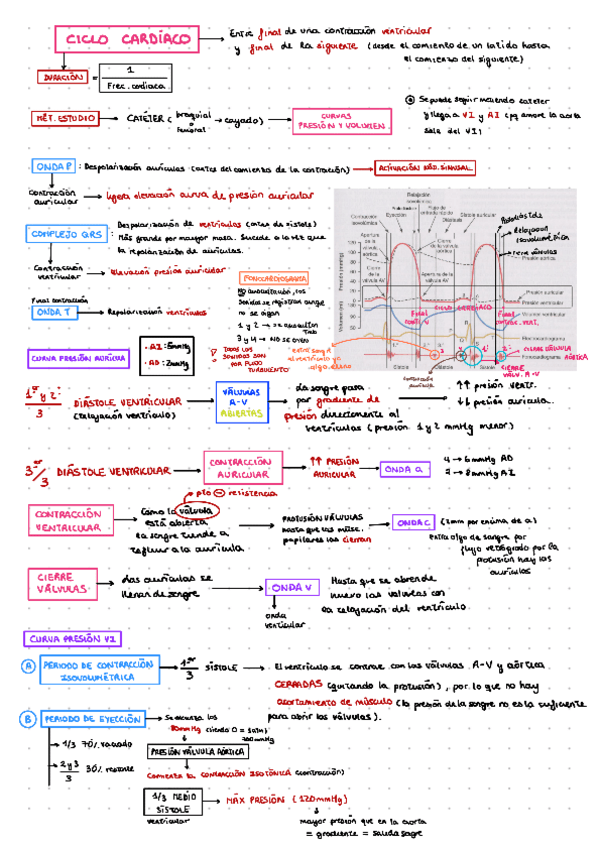 CICLO CARDÍACO
Entre final de una contracción ventricular
y final de la siguiente (desde el comienzo de un latido hasta
el comienzo del siguiente)
DURACIÓN = 1
Frec. cardiaca
MÉT. ESTUDIO → CATÉTER (braquial → cayado)
femoral
CURVAS
PRESIÓN Y VOLUMEN
Se puede seguir metiendo catéter
y llega a VI y AI (pq
sale del VI)
ONDA P : Despolarización aurículas (antes del comienzo de la contracción) → ACTIVACIÓN NÓD. SINUSAL
contracción
auricular → ligera elevación curva de presión auricular
COMPLEJO QRS
Despolarización de ventrículos (antes de sístole)
Más grande por mayor masa. Sucede a la vez que
la repolarización de aurículas.
contracción
ventricular → elevación presión auricular
Final contracción
ONDA T → Repolarización ventrículos
FONOCARDIOGRAMA
NO auscultación, los
sonidos se registran aunque
no se oigan
1 y 2 → se auscultan
3 y 4 → NO se oyen
TODOS LOS
SONIDOS SON
POR FLUJO
TURBULENTO
CURVA PRESIÓN AURÍCULA
AI: 5mmHg
AD: 2mmHg
Contracción
isovolumétrica
Eyección
Relajación
isovolumétrica
Flujo de
entrada rápido
Diástasis
Sístole auricular
Apertura
de la
válvula
aórtica
Cierre
de la
válvula AV
Cierre
de la válvula
aórtica
Apertura de la
válvula AV
Presión (mmHg)
120
100
80
60
40
20
0
Volumen (ml)
Relajación
isovolumétrica
Cierre válvulas
Presión aórtica
Presión auricular
Presión ventricular
Volumen ventricular
Electrocardiograma
Fonocardiograma
CICLO CARDÍACO
Final
contr. V
Final
contrac. vent.
Sístole
Diástole
Sístole
CIERRE VÁLVULA
AÓRTICA
CIERRE
VALV. A-V
contracción
auricular
entra sangre
al ventrículo y
algo
1er y 2º
3
DIÁSTOLE VENTRICULAR
(relajación ventrículo)
VÁLVULAS
A-V
ABIERTAS
La sangre pasa
por gradiente de
presión directamente al
ventrículos (presión 1 y 2 mmHg menor)
↑↑ presión ventr.
↓↓ presión aurícula.
3er/3 DIÁSTOLE VENTRICULAR → CONTRACCIÓN
AURICULAR
↑↑ PRESIÓN
AURICULAR → ONDA a
4 → 6mmHg AD
7 → 8mmHg AI
pto ⊖ resistencia
CONTRACCIÓN
VENTRICULAR
Como la válvula
está abierta
la sangre tiende a
refluir a la aurícula.
PROTUSIÓN VÁLVULAS
hasta que los músc.
papilares las cierran
ONDA C (2mm por encima de a)
Entra algo de sangre por
flujo retrógrado por la
protusión hay las
aurículas
CIERRE
VÁLVULAS
Las aurículas se
llenan de sangre
ONDA V
onda
ventricular
Hasta que se abren de
nuevo las válvulas con
la relajación del ventrículo.
CURVA PRESIÓN VI
A PERIODO DE CONTRACCIÓN
ISOVOLUMÉTRICA
1er
3
SÍSTOLE
El ventrículo se contrae con las válvulas A-V y aórtica
CERRADAS (quitando la protusión), por lo que no hay
acortamiento de músculo (la presión de la sangre no es la suficiente
para abrir las válvulas).
B PERIODO DE EYECCIÓN → Se alcanza los
80mmHg
PRESIÓN VÁLVULA AÓRTICA
Comienza la CONTRACCIÓN ISOTÓNICA (contracción)
→ 1/3 70% vaciado
→ 2 y 3
3
30% restante
1/3 MEDIO
SÍSTOLE
ventricular
MÁX PRESIÓN (120mmHg)
mayor presión que en la aorta
= gradiente = salida sangre